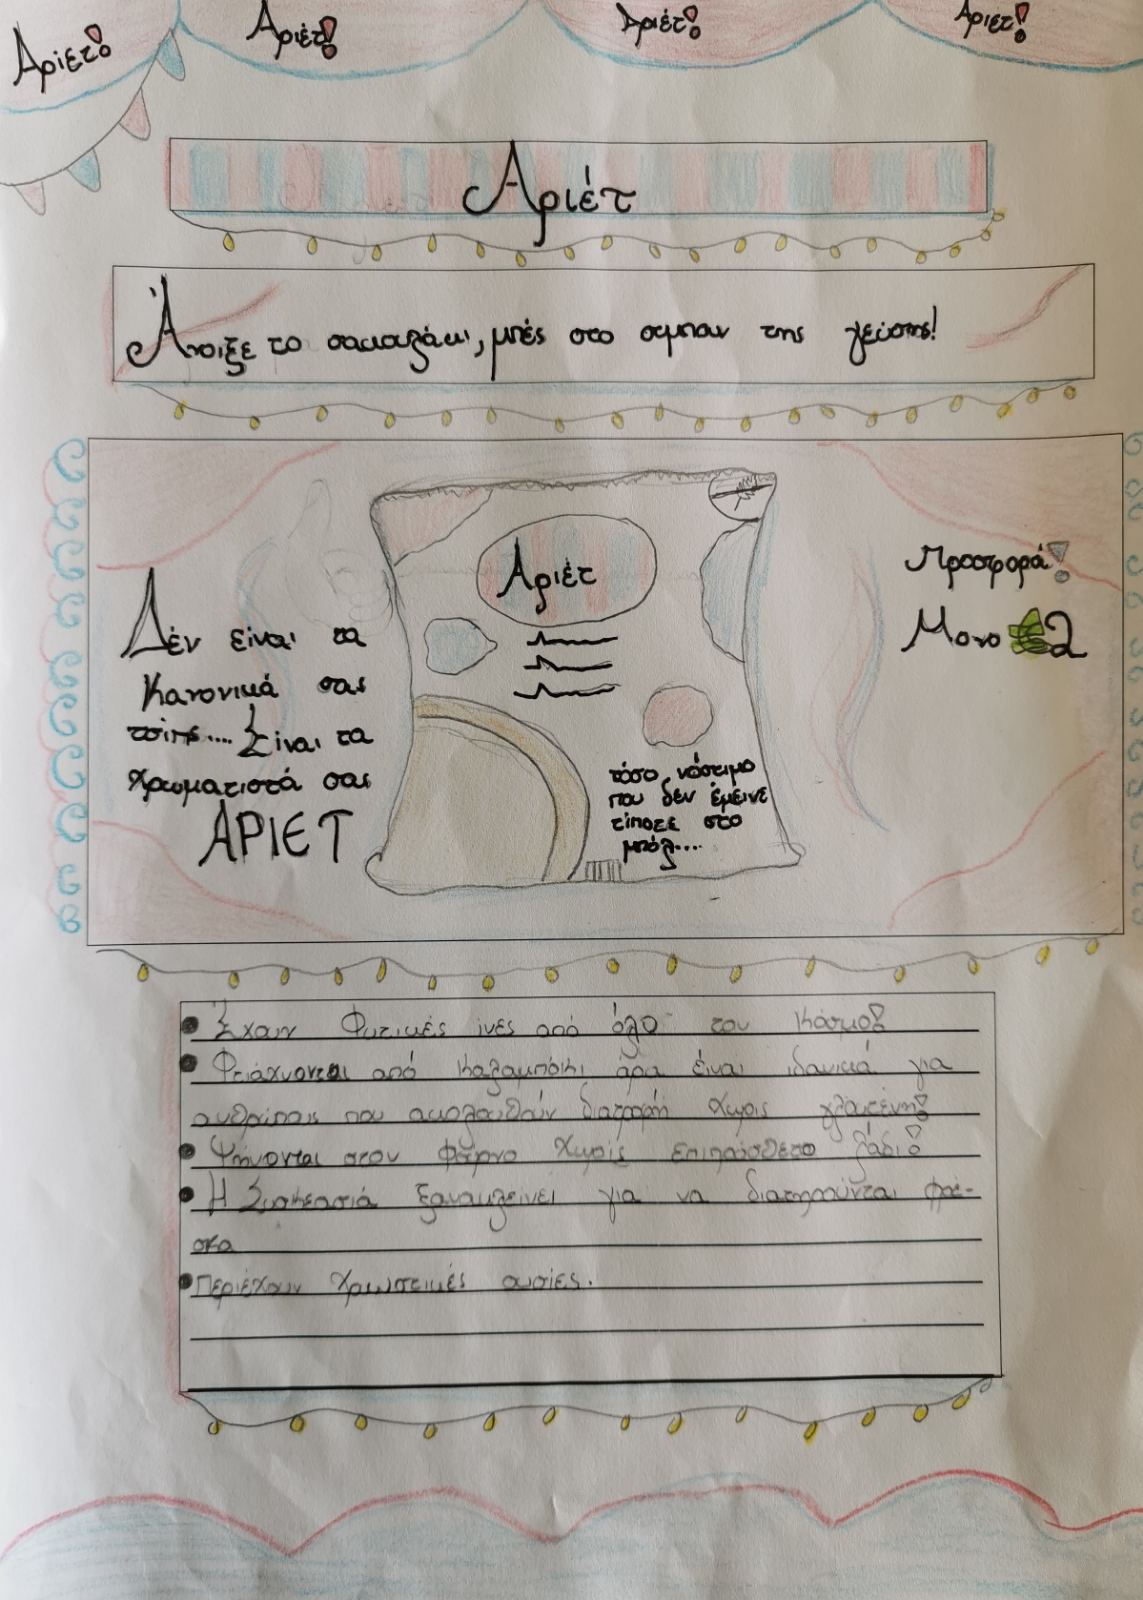 Αριέτ!
Αριέτ!
Αριέτ!
Αριέτ!
Αριέτ
Άνοιξε το σακουλάκι, μπές στο σύμπαν της γεύσης!
Δέν είναι τα
Κανονικά σας
τσίπς.... Είναι τα
Χρωματιστά σας
ΑΡΙΕΤ
Αριέτ
τόσο νόστιμο
που δέν έμεινε
τίποτε στο
μπόλ....
Προσφορά!
Μονο €2
Έχουν Φυτικές ίνες από όλο τον Κόσμο!
Φτιάχνονται από Καλαμπόκι άρα είναι ιδανικά για
ανθρώπους που ακολουθούν διατροφή Χωρίς γλουτένη!
Ψήνονται στον Φούρνο Χωρίς επιπρόσθετο λάδι!
Η Συσκευασία ξανακλείνει για να διατηρούνται φρέ-
σκα
Περιέχουν Χρωστικές ουσίες.